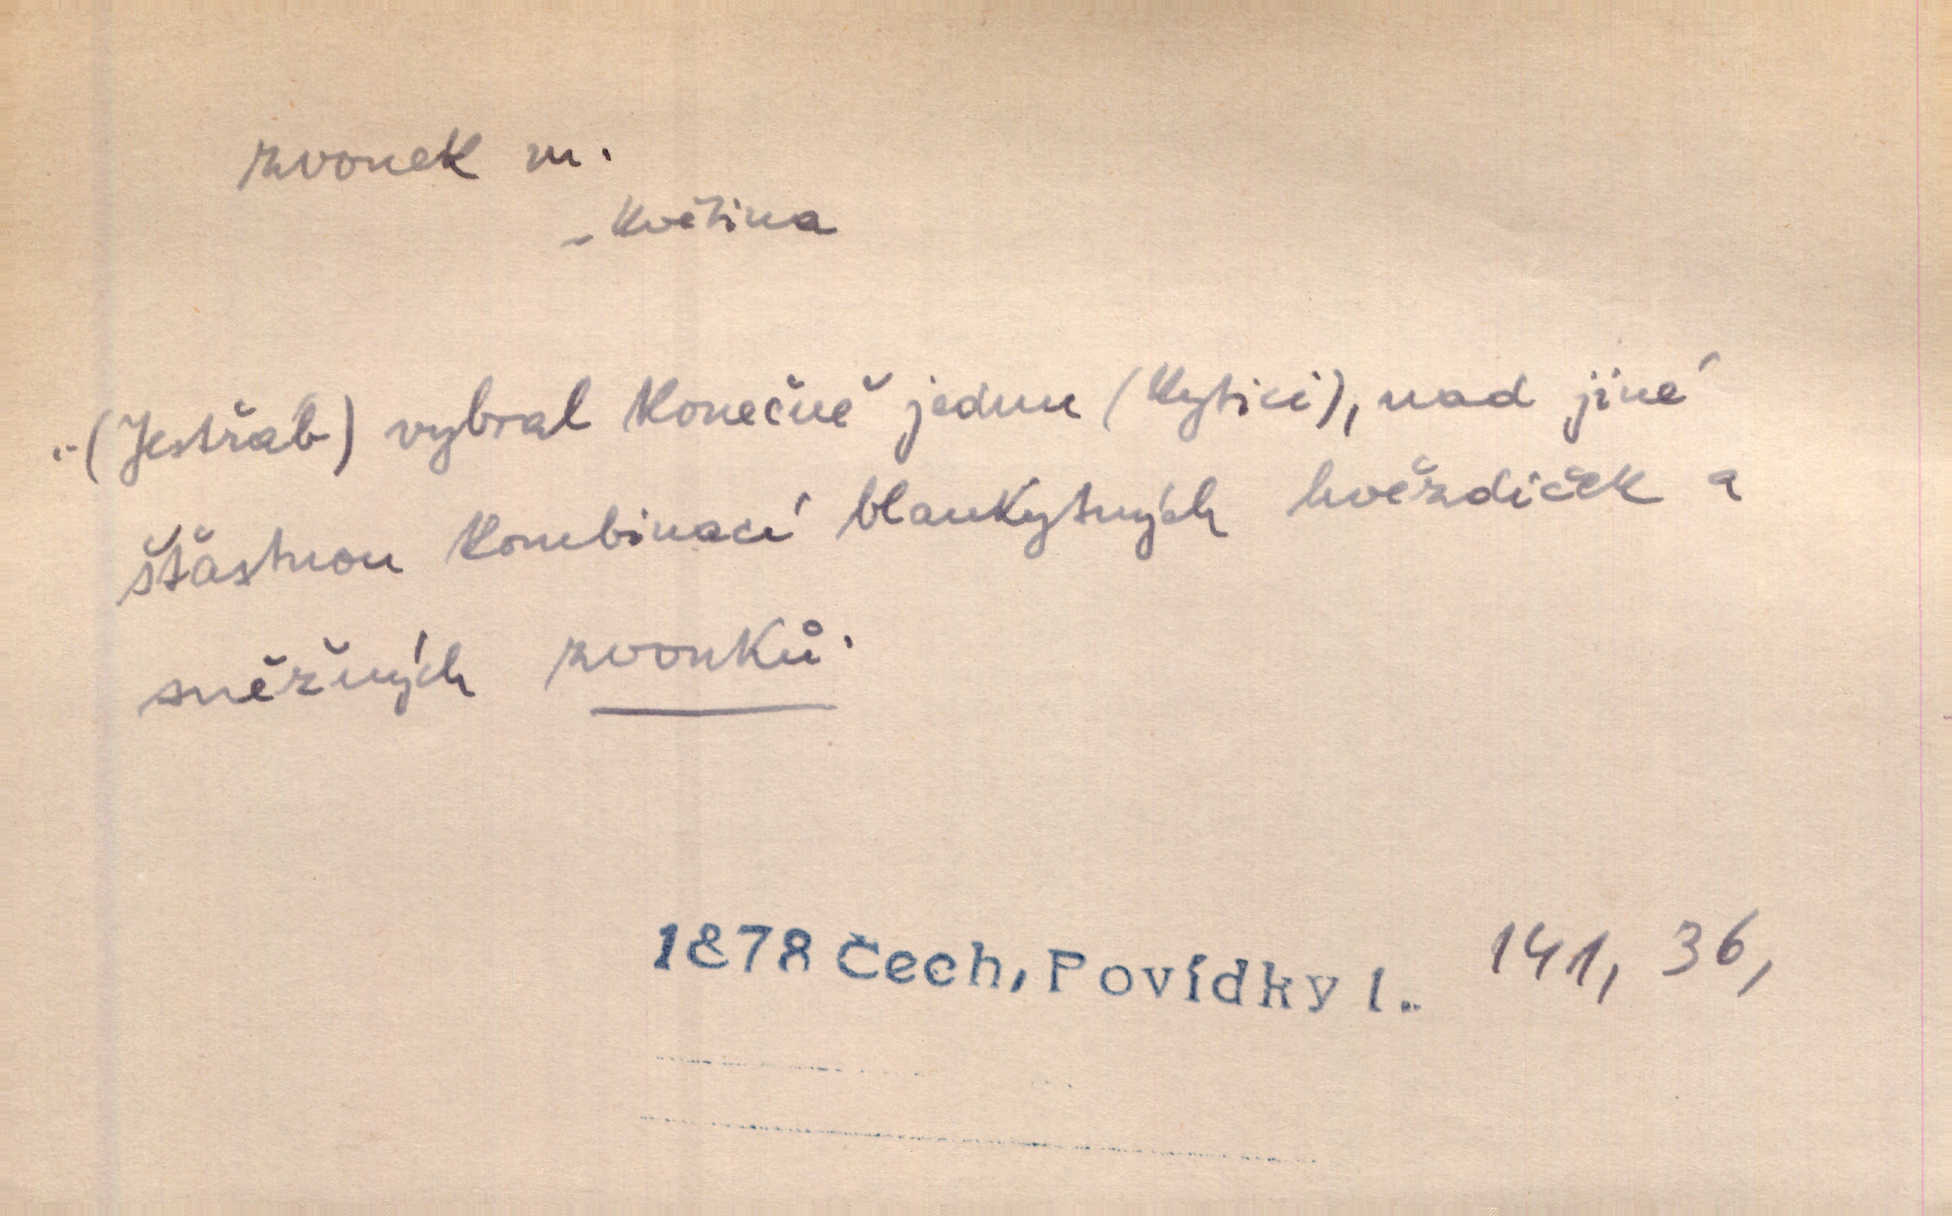 zvonek m.
- květina
..(Jestřáb) vybral konečně jednu (kytici), nad jiné
šťastnou kombinací blankytných hvězdiček a
sněžných zvonků.
1878 Čech, Povídky I.. 141, 36,